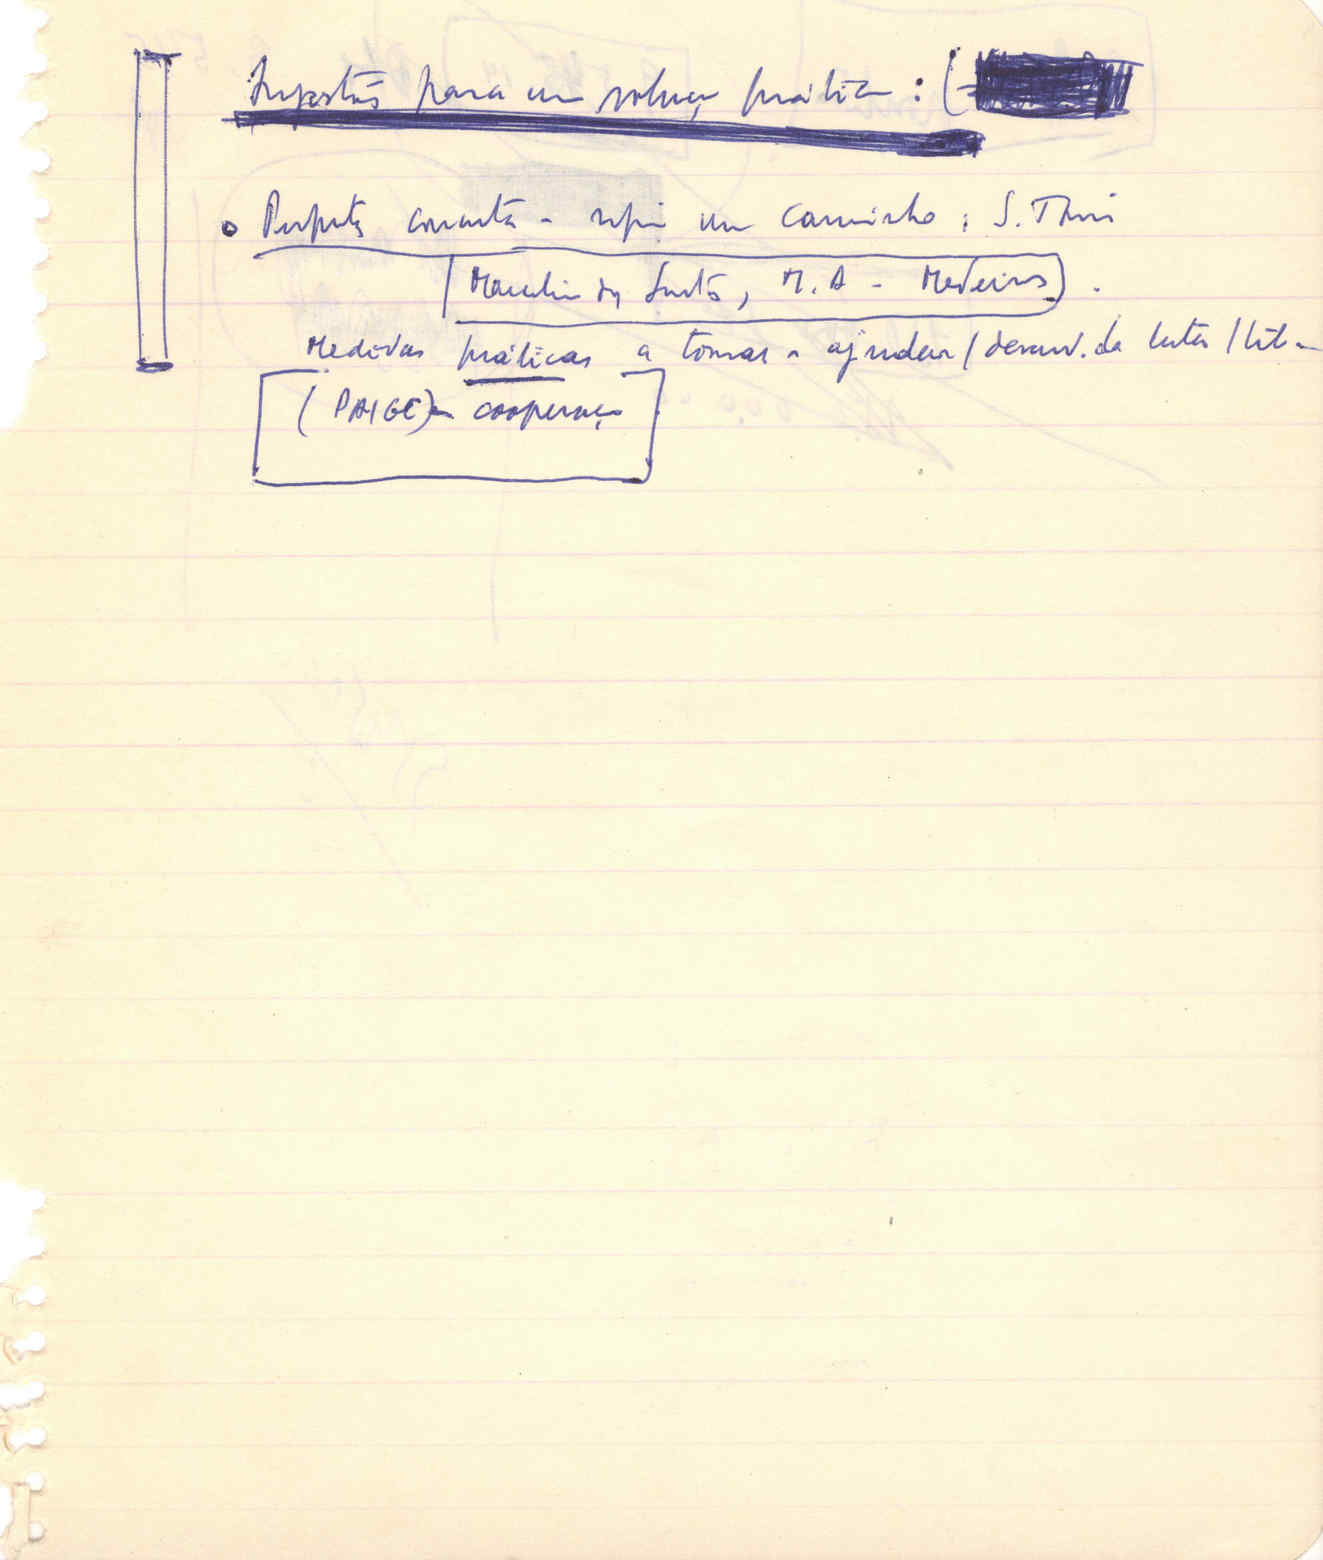 Sugestões para uma solução prática : (
Proposta concreta - seguir um caminho : S. Tomé
(Marcelino dos Santos, M. A - Medeiros) .
Medidas práticas a tomar - ajudar / desenv. da luta / lib -
(PAIGC) - cooperação